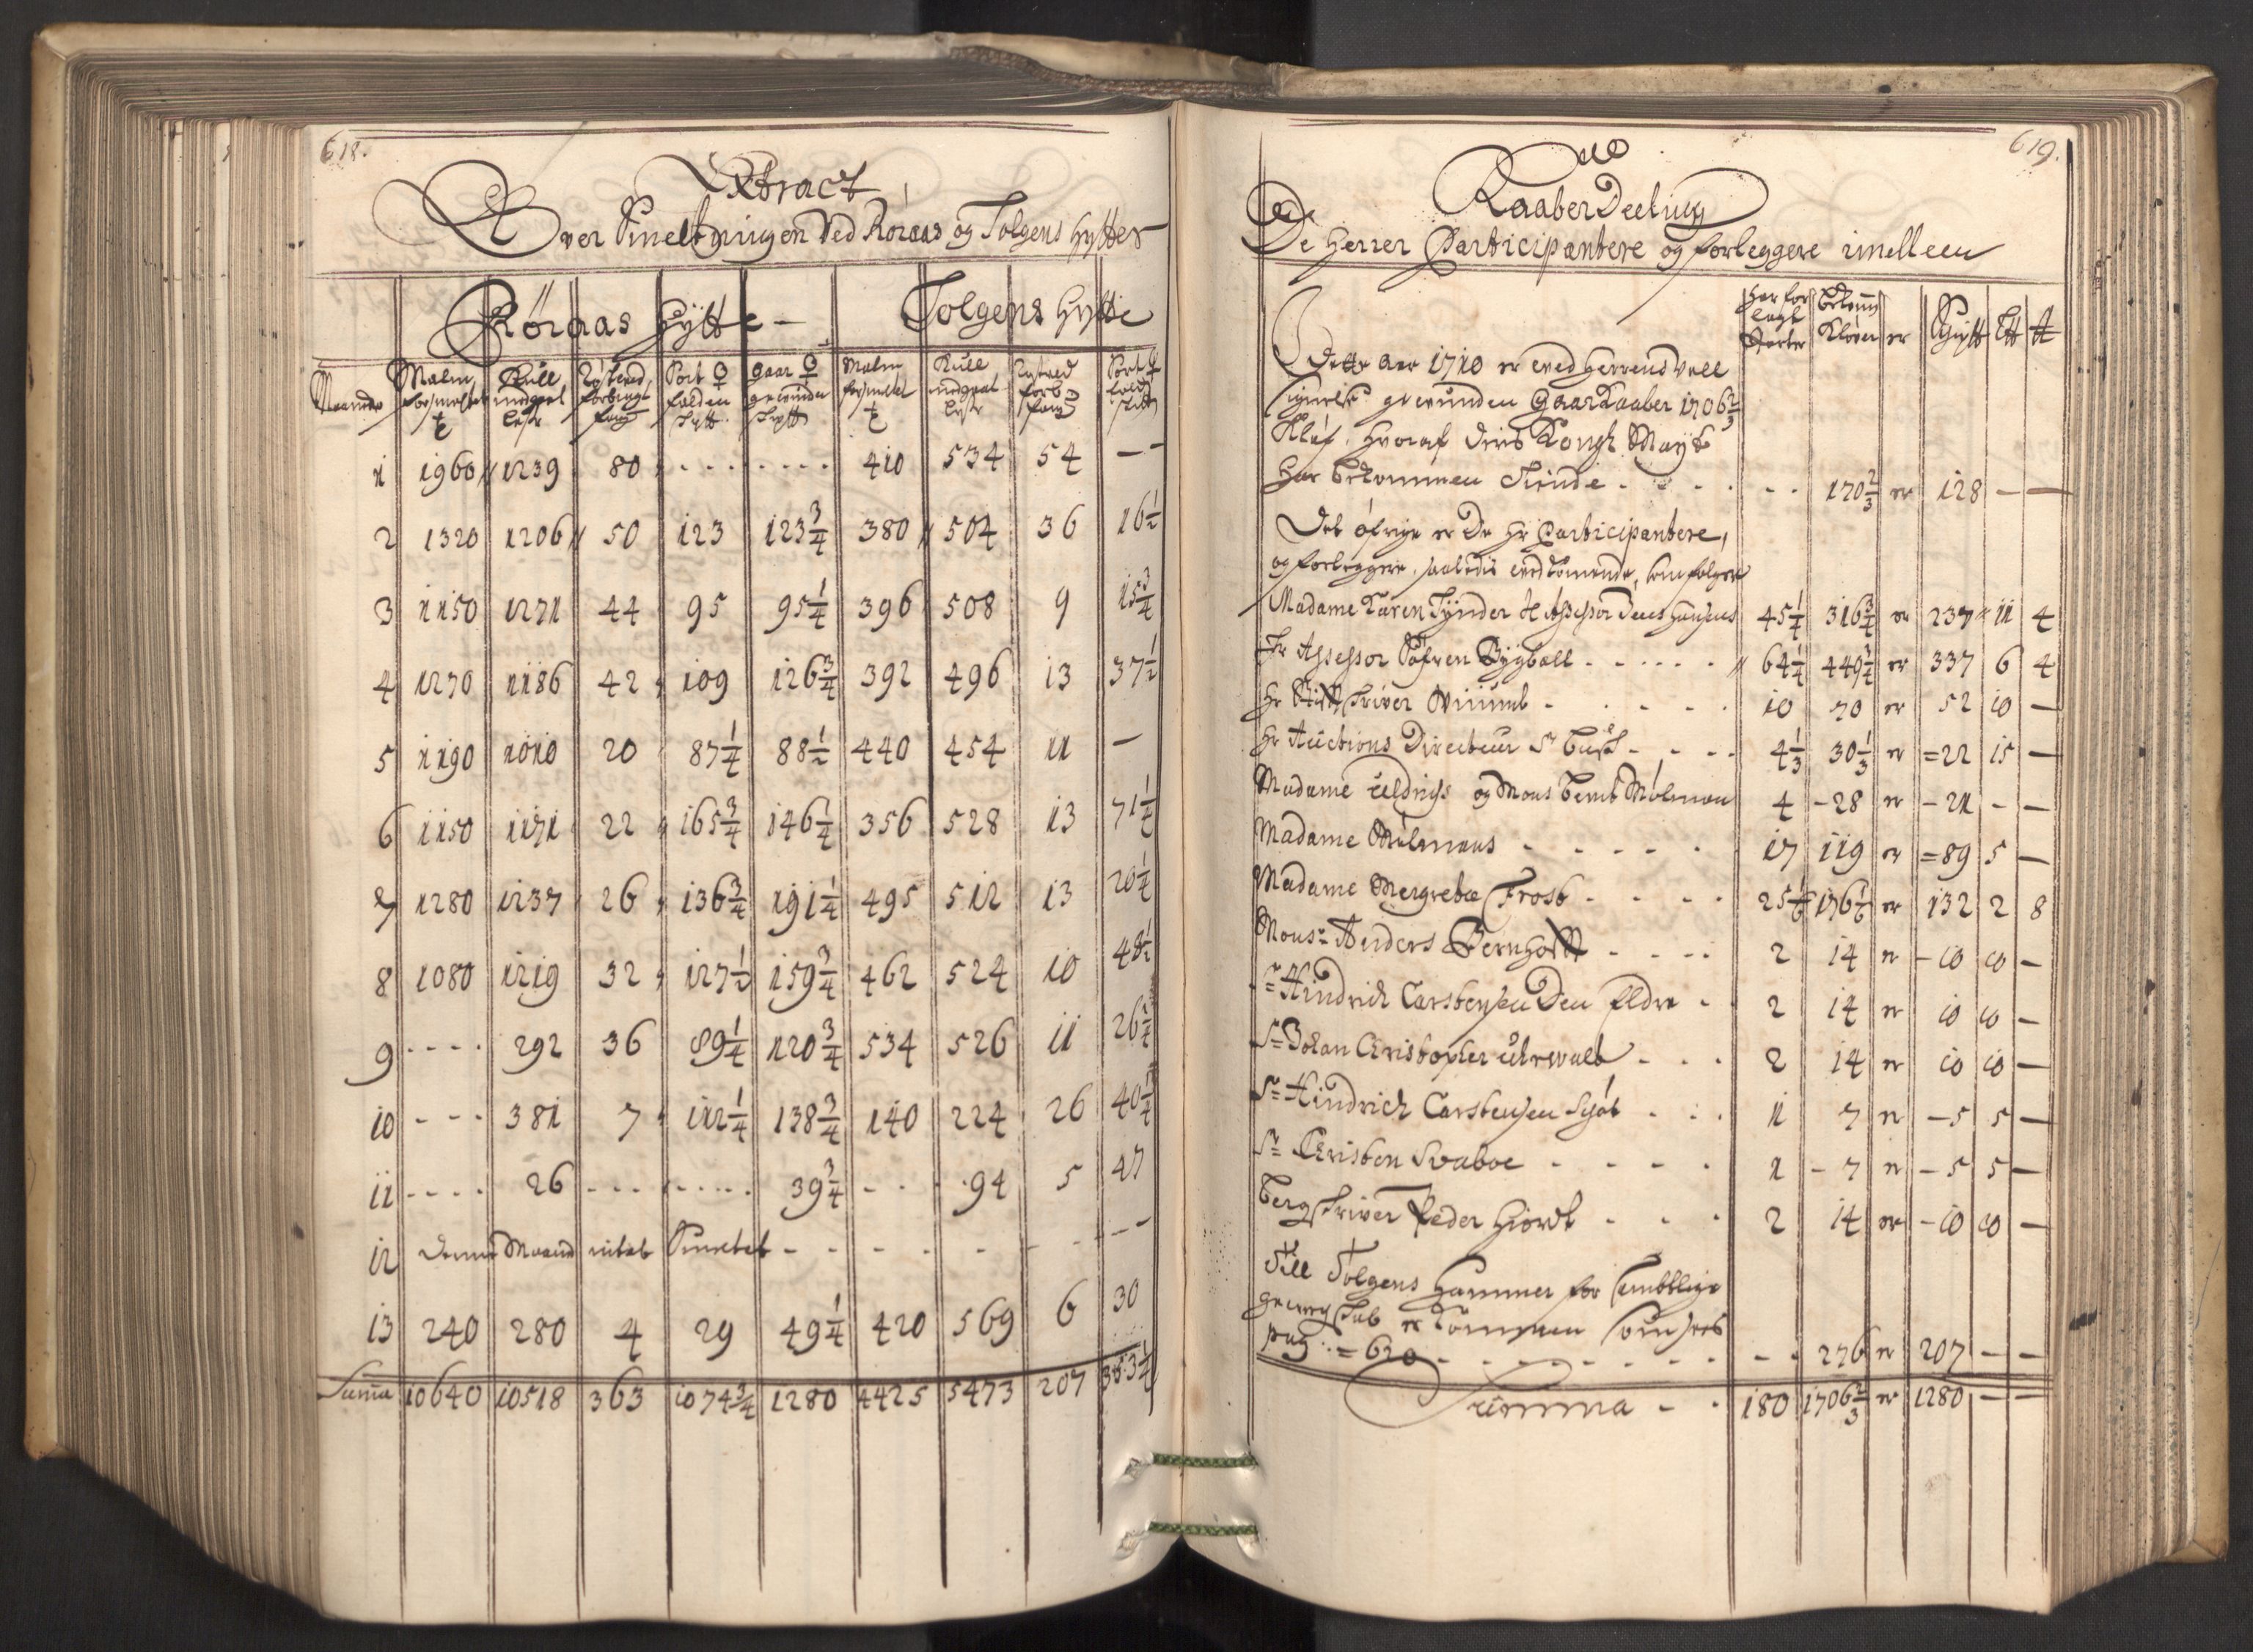 618.
Extract
Over Smeltningen Ved Röraas og Tolgens Hytter
Röraas Hytte - Tolgens Hytte
Maaneder Malm forsmeltet Kull medgaaet lester Röstved forbrugt faug Sort falden gaar gewunden Malm forsmeltet Kull medgaaet lester Röstved forb faug Sort falden
1 1960 1239 80 - - - - - - - - 410 534 54 - -
2 1320 1206 50 123 123 3/4 380 504 36 16 1/2
3 1150 1271 44 95 95 1/4 396 508 9 15 3/4
4 1270 1186 42 109 126 3/4 392 496 13 37 1/2
5 1190 1010 20 87 1/4 88 1/2 440 454 11 -
6 1150 1171 22 165 3/4 146 1/4 356 528 13 71 1/4
7 1280 1237 26 136 3/4 191 1/4 495 512 13 20 1/4
8 1080 1219 32 127 1/2 159 3/4 462 524 10 48 1/2
9 - - - - 292 36 89 1/4 120 3/4 534 526 11 26 1/4
10 - - - 381 7 112 1/4 138 3/4 140 224 26 40 1/4
11 - - - - 26 - - - - - - - 39 3/4 - - 94 5 47
12 Denne Maaned intet Smeltet - - - - - - - -
13 240 280 4 29 49 1/4 420 569 6 30
Suma 10640 10518 363 1074 3/4 1280 4425 5473 207 353 1/4
619.
Kaaber Deeling
De Herrer Participantere og forleggere imellem
har forlagt Parter bekomm Kløver er Skippt Lt ℔
Dette Aar 1710 er ved Herrens Vell
signelse gewunden GaarKaaber 1706 2/3
Kløf. hvoraf Deris Kongl Mayt
har bekommen Tiende - - - - - - 170 2/3 er 128 - -
Det öfrige er De Hr Participantere,
og forleggere, saaledis vedkomende, som fölger
Madame Karen Tÿnder Sl Assessor Jens Hansens 45 1/4 316 3/4 er 237 11 4
Hr Assessor Söfren Bygball - - - - - 64 1/4 449 3/4 er 337 6 4
Hr skriver Wiiund - - - - - 10 70 er 52 10 -
Hr Auctions Directeur Sr - - - - 4 1/3 30 1/3 er = 22 15 -
Madame Uldrichs og Mons Bernt Mølman 4 - 28 er - 21 - -
Madame Mølmans - - - - - 17 119 er = 89 5 -
Madame Mergreta Frost - - - - 25 1/6 176 1/6 er 132 2 8
Monsr Anders Bernhoft - - - - 2 14 er - 10 10 -
Sr Hindrich Carstensen Den Eldre - 2 14 er 10 10 -
Sr Johan Christopher Uhrwalt - - - 2 14 er 10 10 -
Sr Hindrich Carstensen Schöt - - - 1 7 er - 5 5 -
Sr Christen Svaboe - - - - 1 - 7 er - 5 5 -
Bergskriver Peder Hiordt - - - 2 14 er - 10 10 -
Till Tolgens Hammer for samtlige
gewerkskab er kommen som sees
pag: = 620 - - - - - - - - - 276 er 207 - -
Summa - - 180 1706 2/3 er 1280 - -